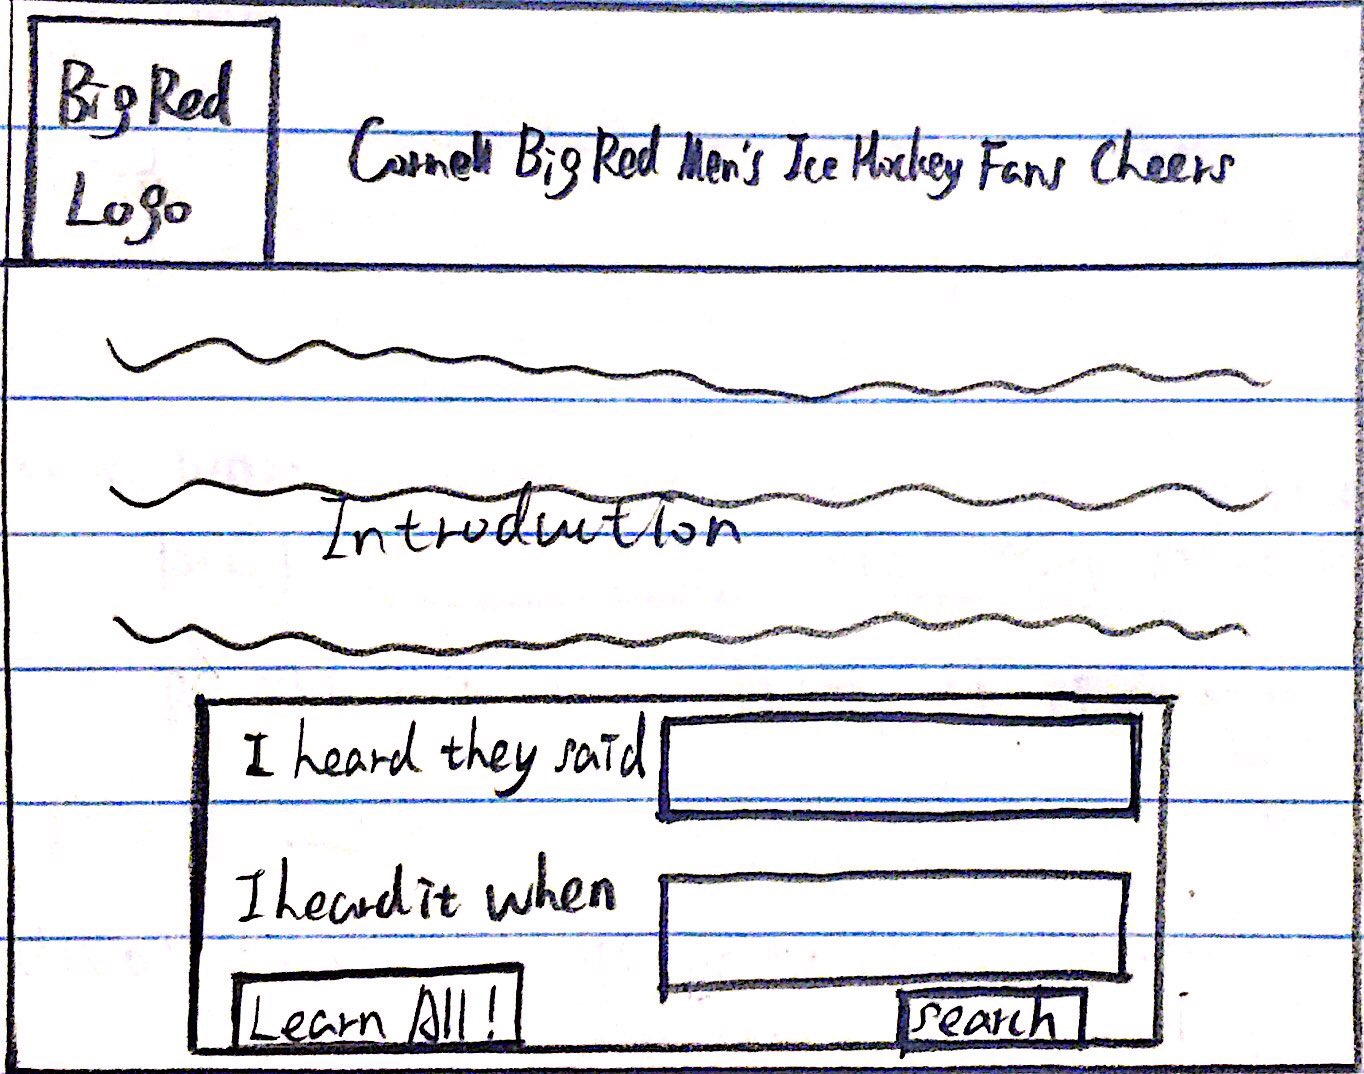 Big Red
Logo
Cornell Big Red Men's Ice Hockey Fans Cheers
Introduction
I heard they said
I heard it when
Learn All!
search